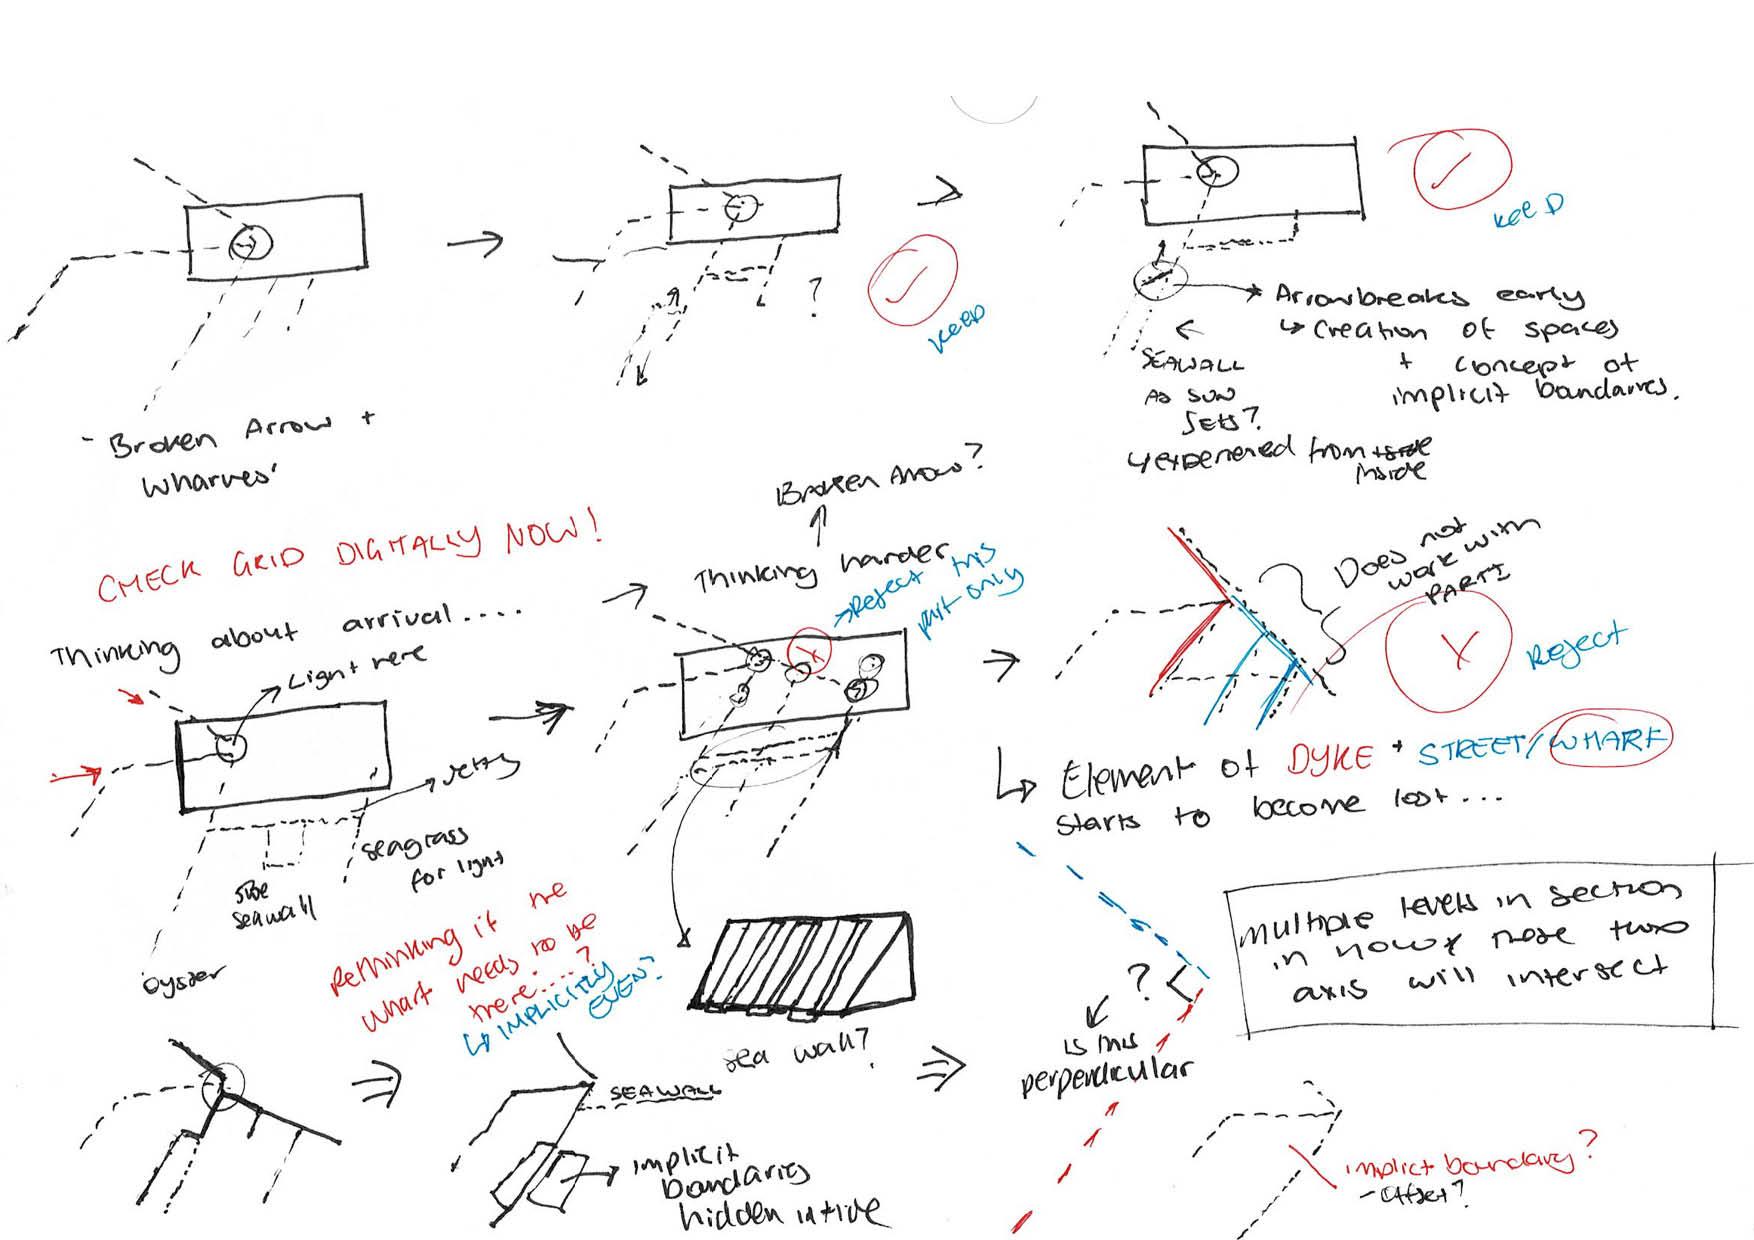 KEEP
KEEP
?
- Broken Arrow +
Wharves'
Arrow breaks early
↳ Creation of spaces
+ concept of
implicit boundaries.
SEAWALL
AS SUN
SETS?
↳ experienced from
inside
CHECK GRID DIGITALLY NOW!
Thinking about arrival....
Light here
Jetty
seagrass
for light
seawall
Oyster
Broken Arrow?
Thinking harder
Reject this
part only
Does not
work with
PARTI
Reject
↳ Element of DYKE + STREET/WHARF
starts to become lost...
Rethinking if the
wharf needs to be
here....?
↳ IMPLICITLY
EVEN?
sea wall?
?
is this
perpendicular
multiple levels in section
axis will intersect
SEAWALL
implicit
boundaries
hidden in tide
implict boundary?
- offset?